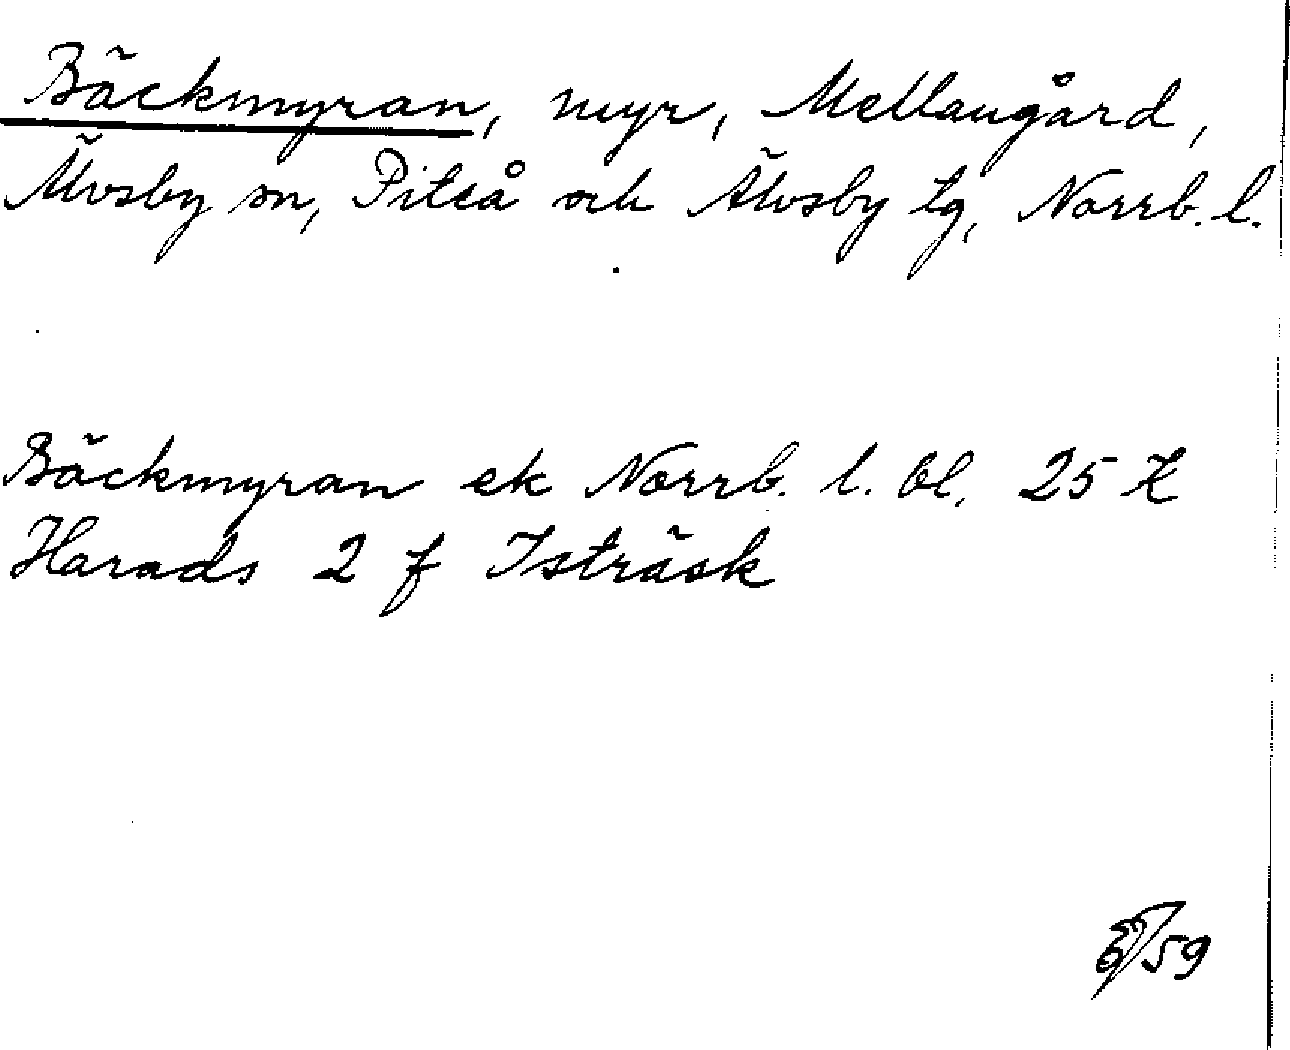 Bäckmyran, myr, Mellangård,
Älvsby sn, Piteå och Älvsby tg, Norrb. l.
Bäckmyran ek Norrb. l. bl. 25 K
Harads 2 f Isträsk
59